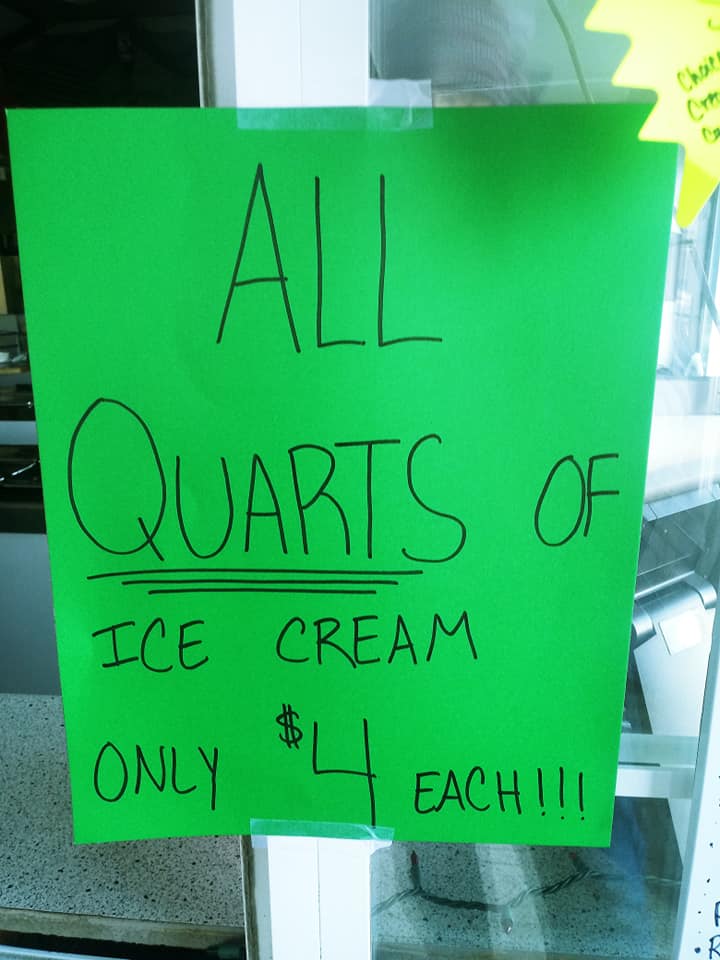 ALL
QUARTS OF
ICE CREAM
ONLY $4 EACH!!!